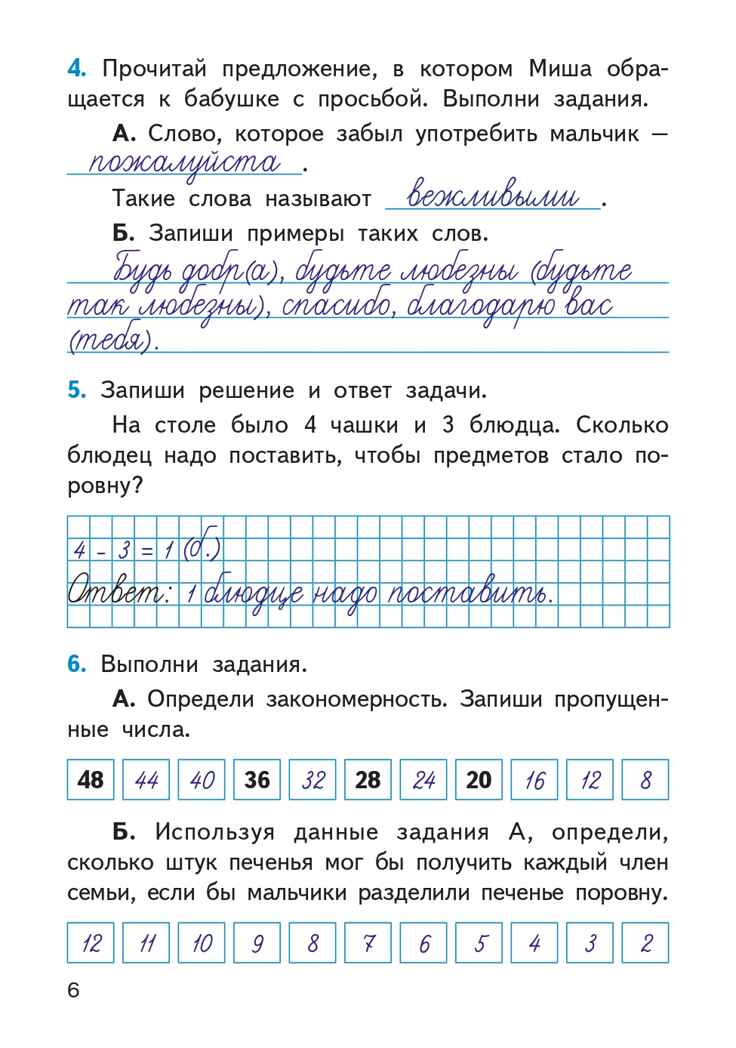 4. Прочитай предложение, в котором Миша обра-
щается к бабушке с просьбой. Выполни задания.
А. Слово, которое забыл употребить мальчик —
пожалуйста.
Такие слова называют вежливыми.
Б. Запиши примеры таких слов.
Будь добр(а), будьте любезны (будьте
так любезны), спасибо, благодарю вас
(тебя).
5. Запиши решение и ответ задачи.
На столе было 4 чашки и 3 блюдца. Сколько
блюдец надо поставить, чтобы предметов стало по-
ровну?
4 - 3 = 1 (б.)
Ответ: 1 блюдце надо поставить.
6. Выполни задания.
А. Определи закономерность. Запиши пропущен-
ные числа.
48 44 40 36 32 28 24 20 16 12 8
Б. Используя данные задания А, определи,
сколько штук печенья мог бы получить каждый член
семьи, если бы мальчики разделили печенье поровну.
12 11 10 9 8 7 6 5 4 3 2
6